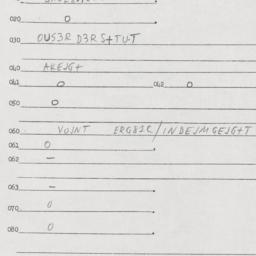 020 O
030 OUS3R D3R S+TU-T
040 AKEJG+
041 O 042 O
050 O
060 VOJNT ERG81C/INDEJMGEJG+T
061 O
062 —
063 —
070 O
080 O